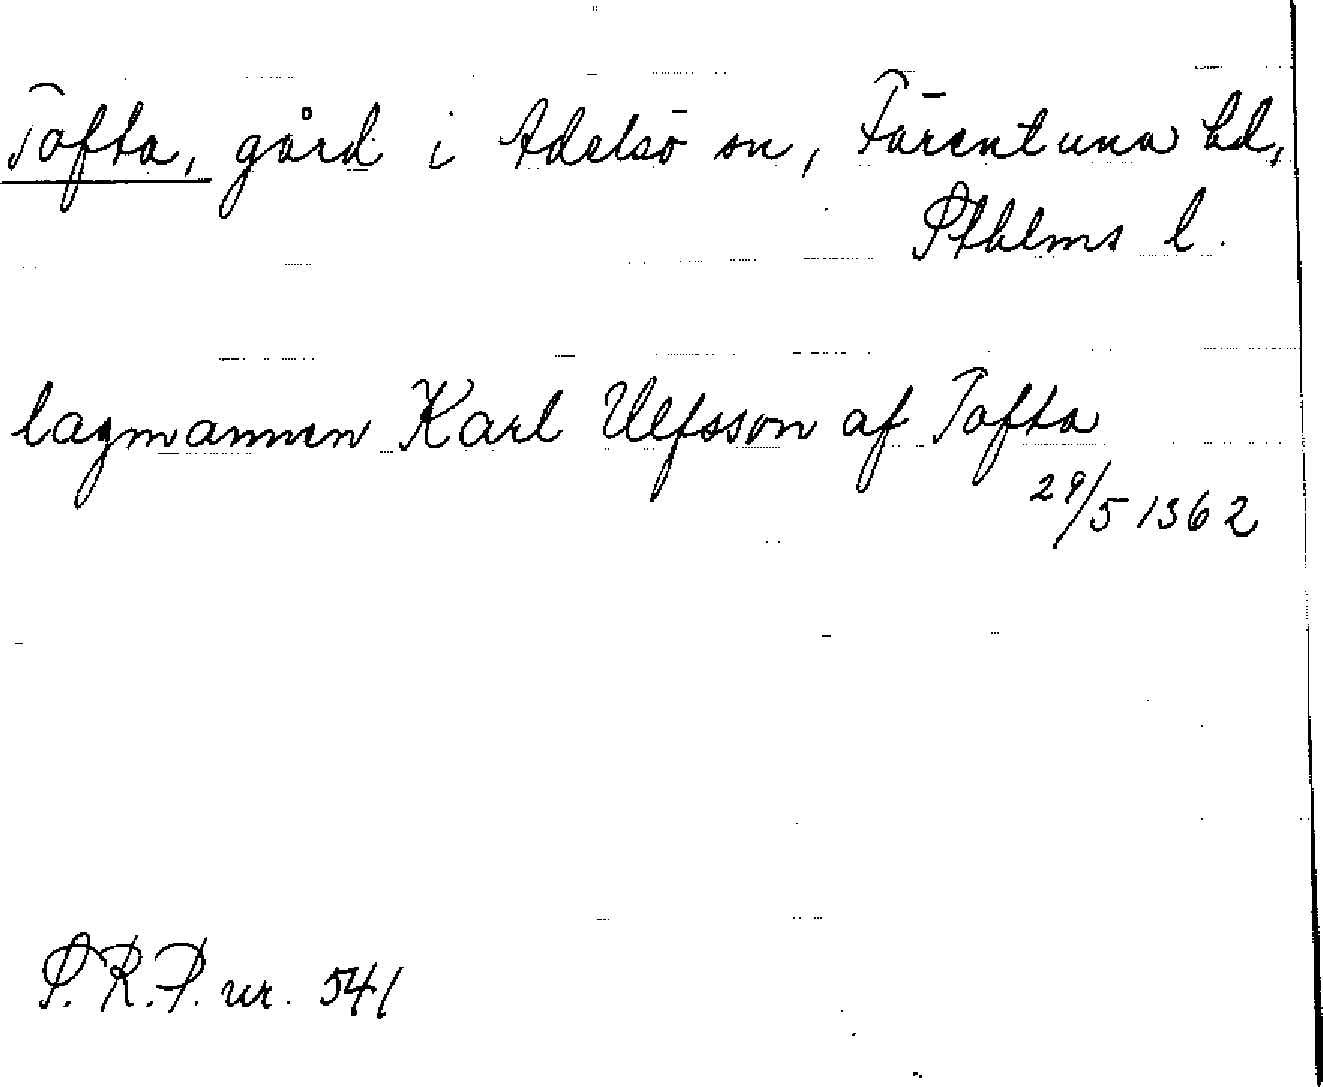 Tofta, gård i Adelsö sn, Färentuna hd,
Sthlms l.
lagmannen Karl Ulfsson af Tofta
29/5 1362
S.R.P. nr. 541